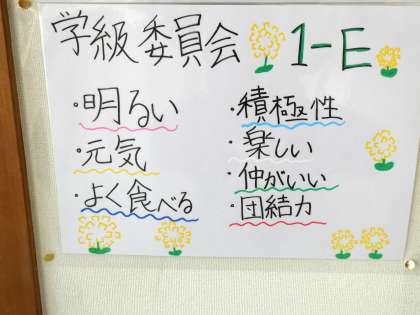 学級委員会 1-E
・明るい
・元気
・よく食べる
・積極性
・楽しい
・仲がいい
・団結力